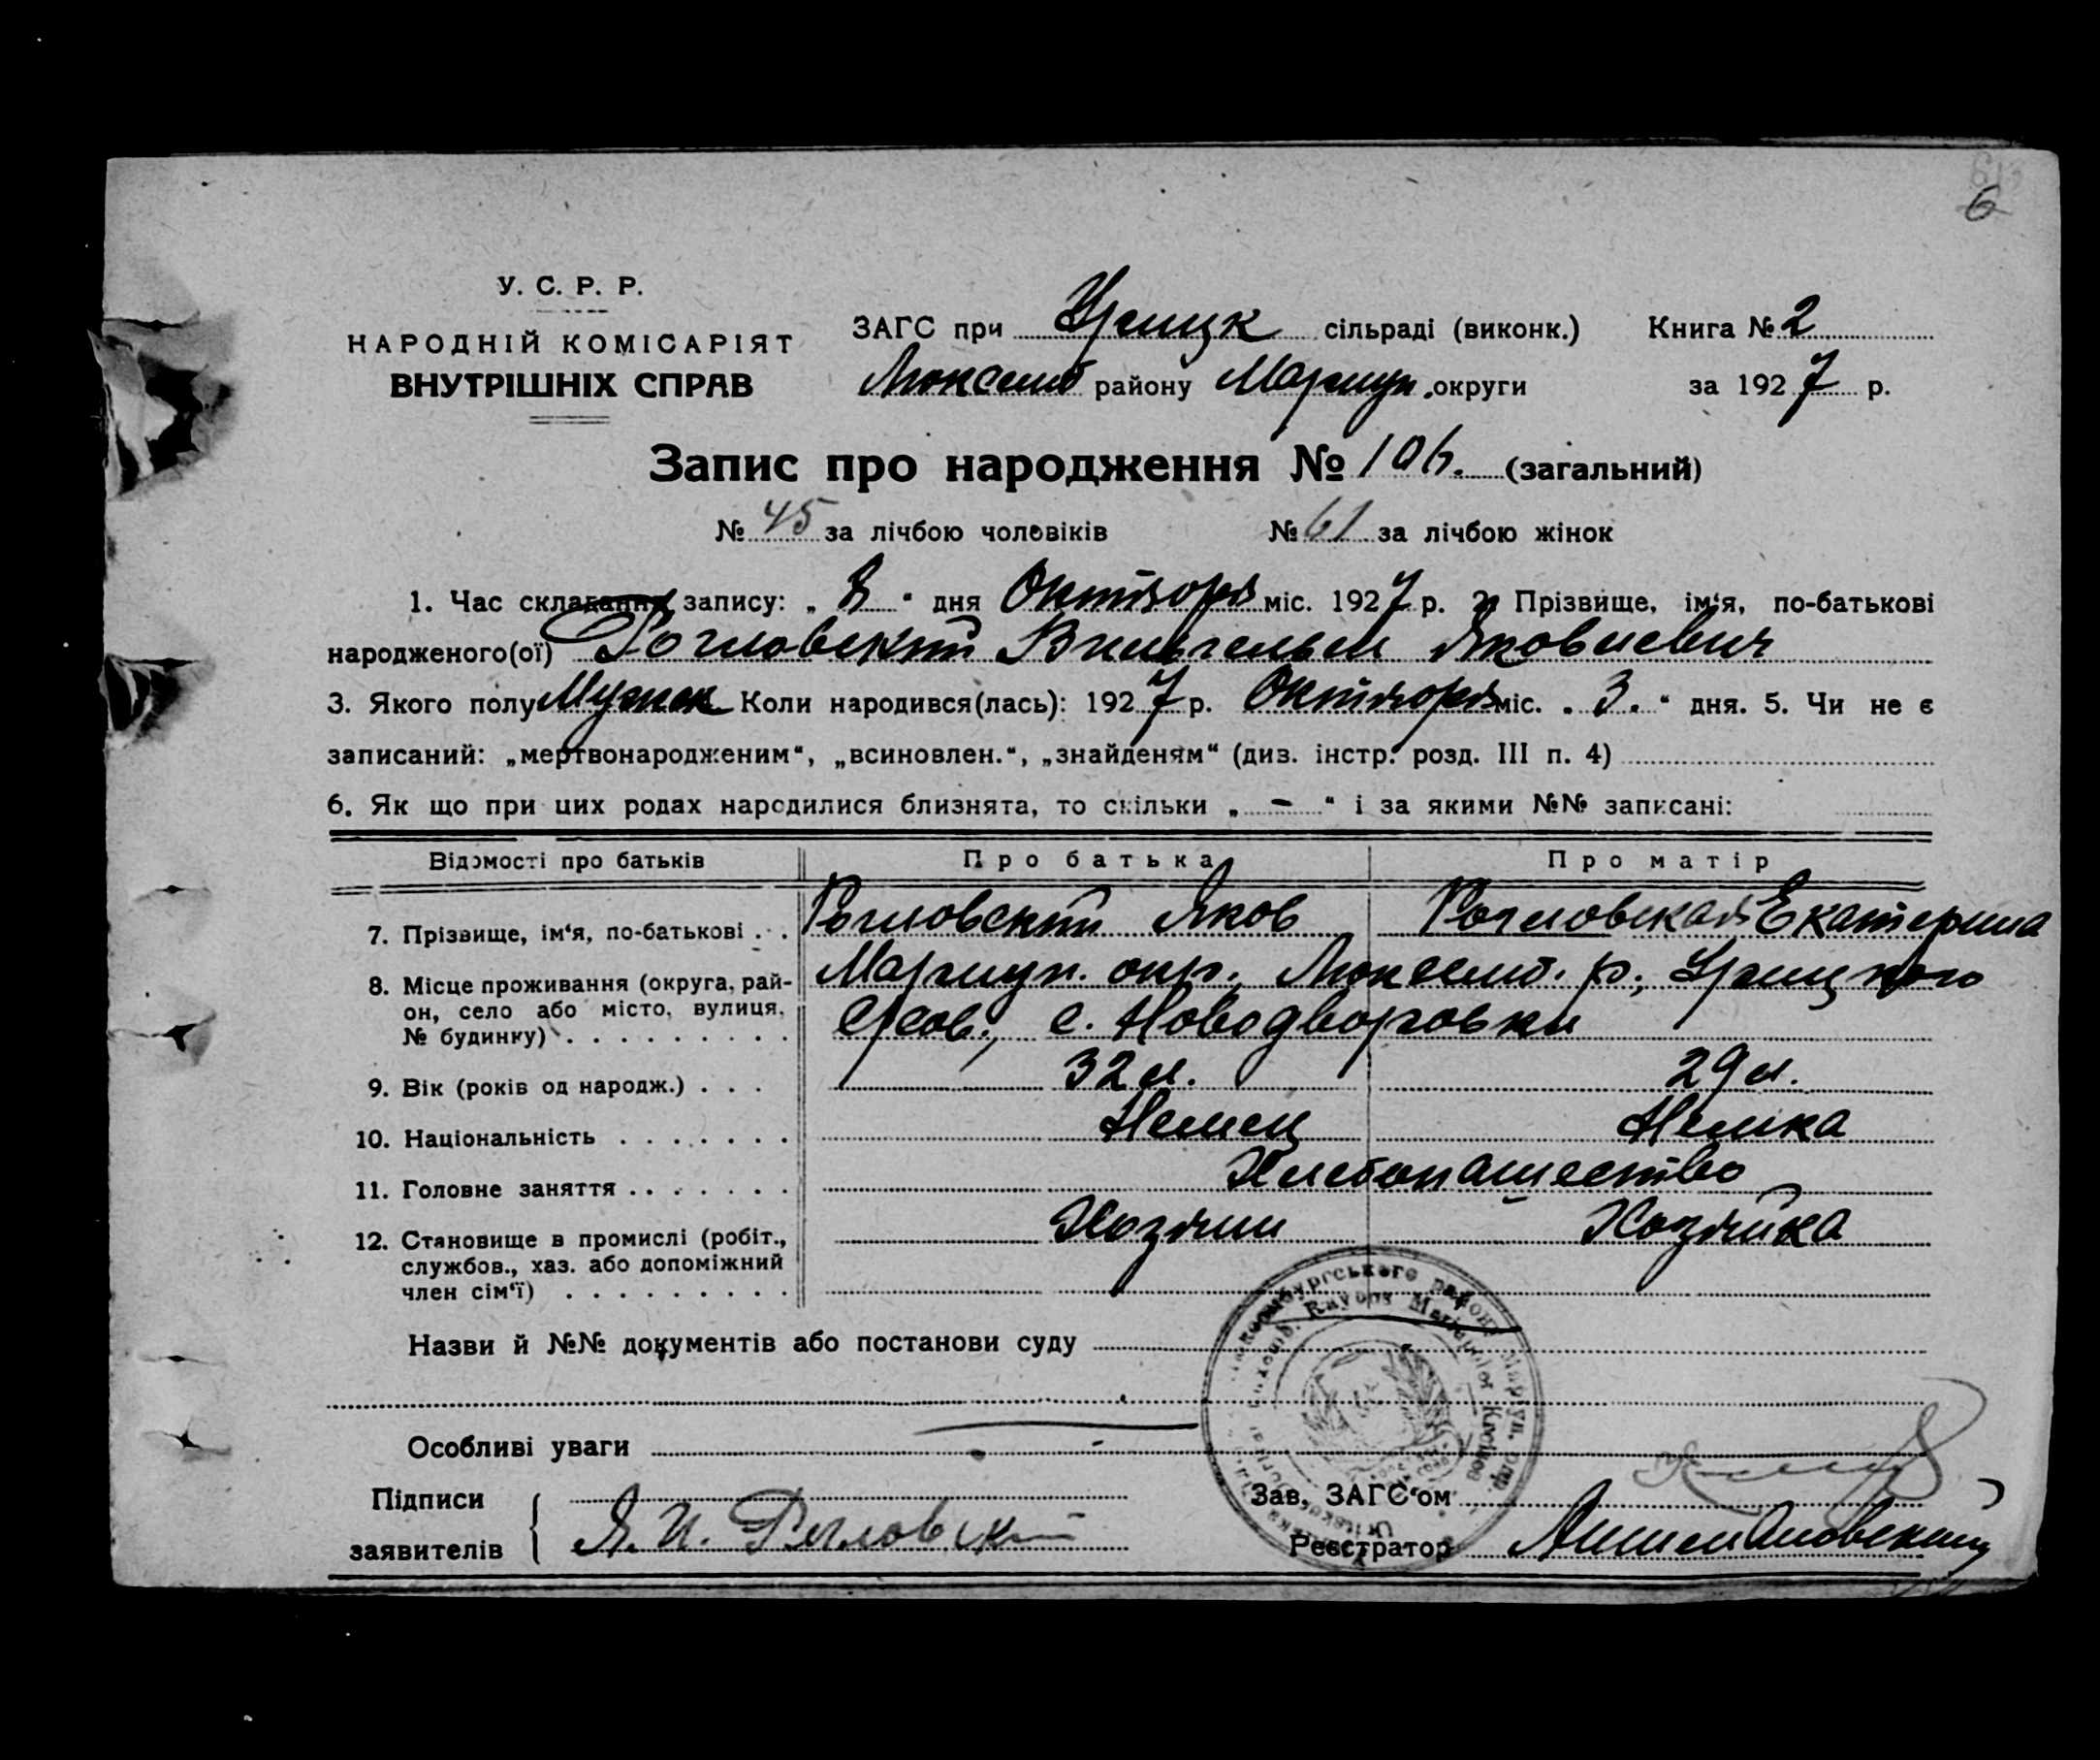 6
У. С. Р. Р.
НАРОДНІЙ КОМІСАРІЯТ
ВНУТРІШНІХ СПРАВ
ЗАГС при Урицк сільраді (виконк.) Книга № 2
Люксемб району Мариуп. округи за 1927 р.
Запис про народження № 106. (загальний)
№ 45 за лічбою чоловіків № 61 за лічбою жінок
1. Час складання запису: „ 8 “ дня Октября міс. 1927 р. 2. Прізвище, ім‘я, по-батькові
народженого(ої) Рогловский Вильгельм Яковлевич
3. Якого полу Мужск Коли народився(лась): 1927 р. Октября міс. „ 3. “ дня. 5. Чи не є
записаний: „мертвонародженим“, „всиновлен.“, „знайденям“ (див. інстр. розд. III п. 4)
6. Як що при цих родах народилися близнята, то скільки „ – “ і за якими №№ записані:
Відомості про батьків Про батька Про матір
7. Прізвище, ім‘я, по-батькові . . Рогловский Яков Рогловская Екатерина
8. Місце проживання (округа, рай- Мариуп. окр., Люксемб. р., Урицкого
он, село або місто, вулиця, с. Новодворовки
№ будинку)
9. Вік (років од народж.) . . . 32 л. 29 л.
10. Національність Немец Немка
11. Головне заняття Хлебопашество
12. Становище в промислі (робіт., Хозяин Хозяйка
службов., хаз. або допоміжний
член сім‘ї)
Назви й №№ документів або постанови суду
Особливі уваги
Підписи Зав. ЗАГС‘ом
заявителів Я. И. Рогловский Реєстратор